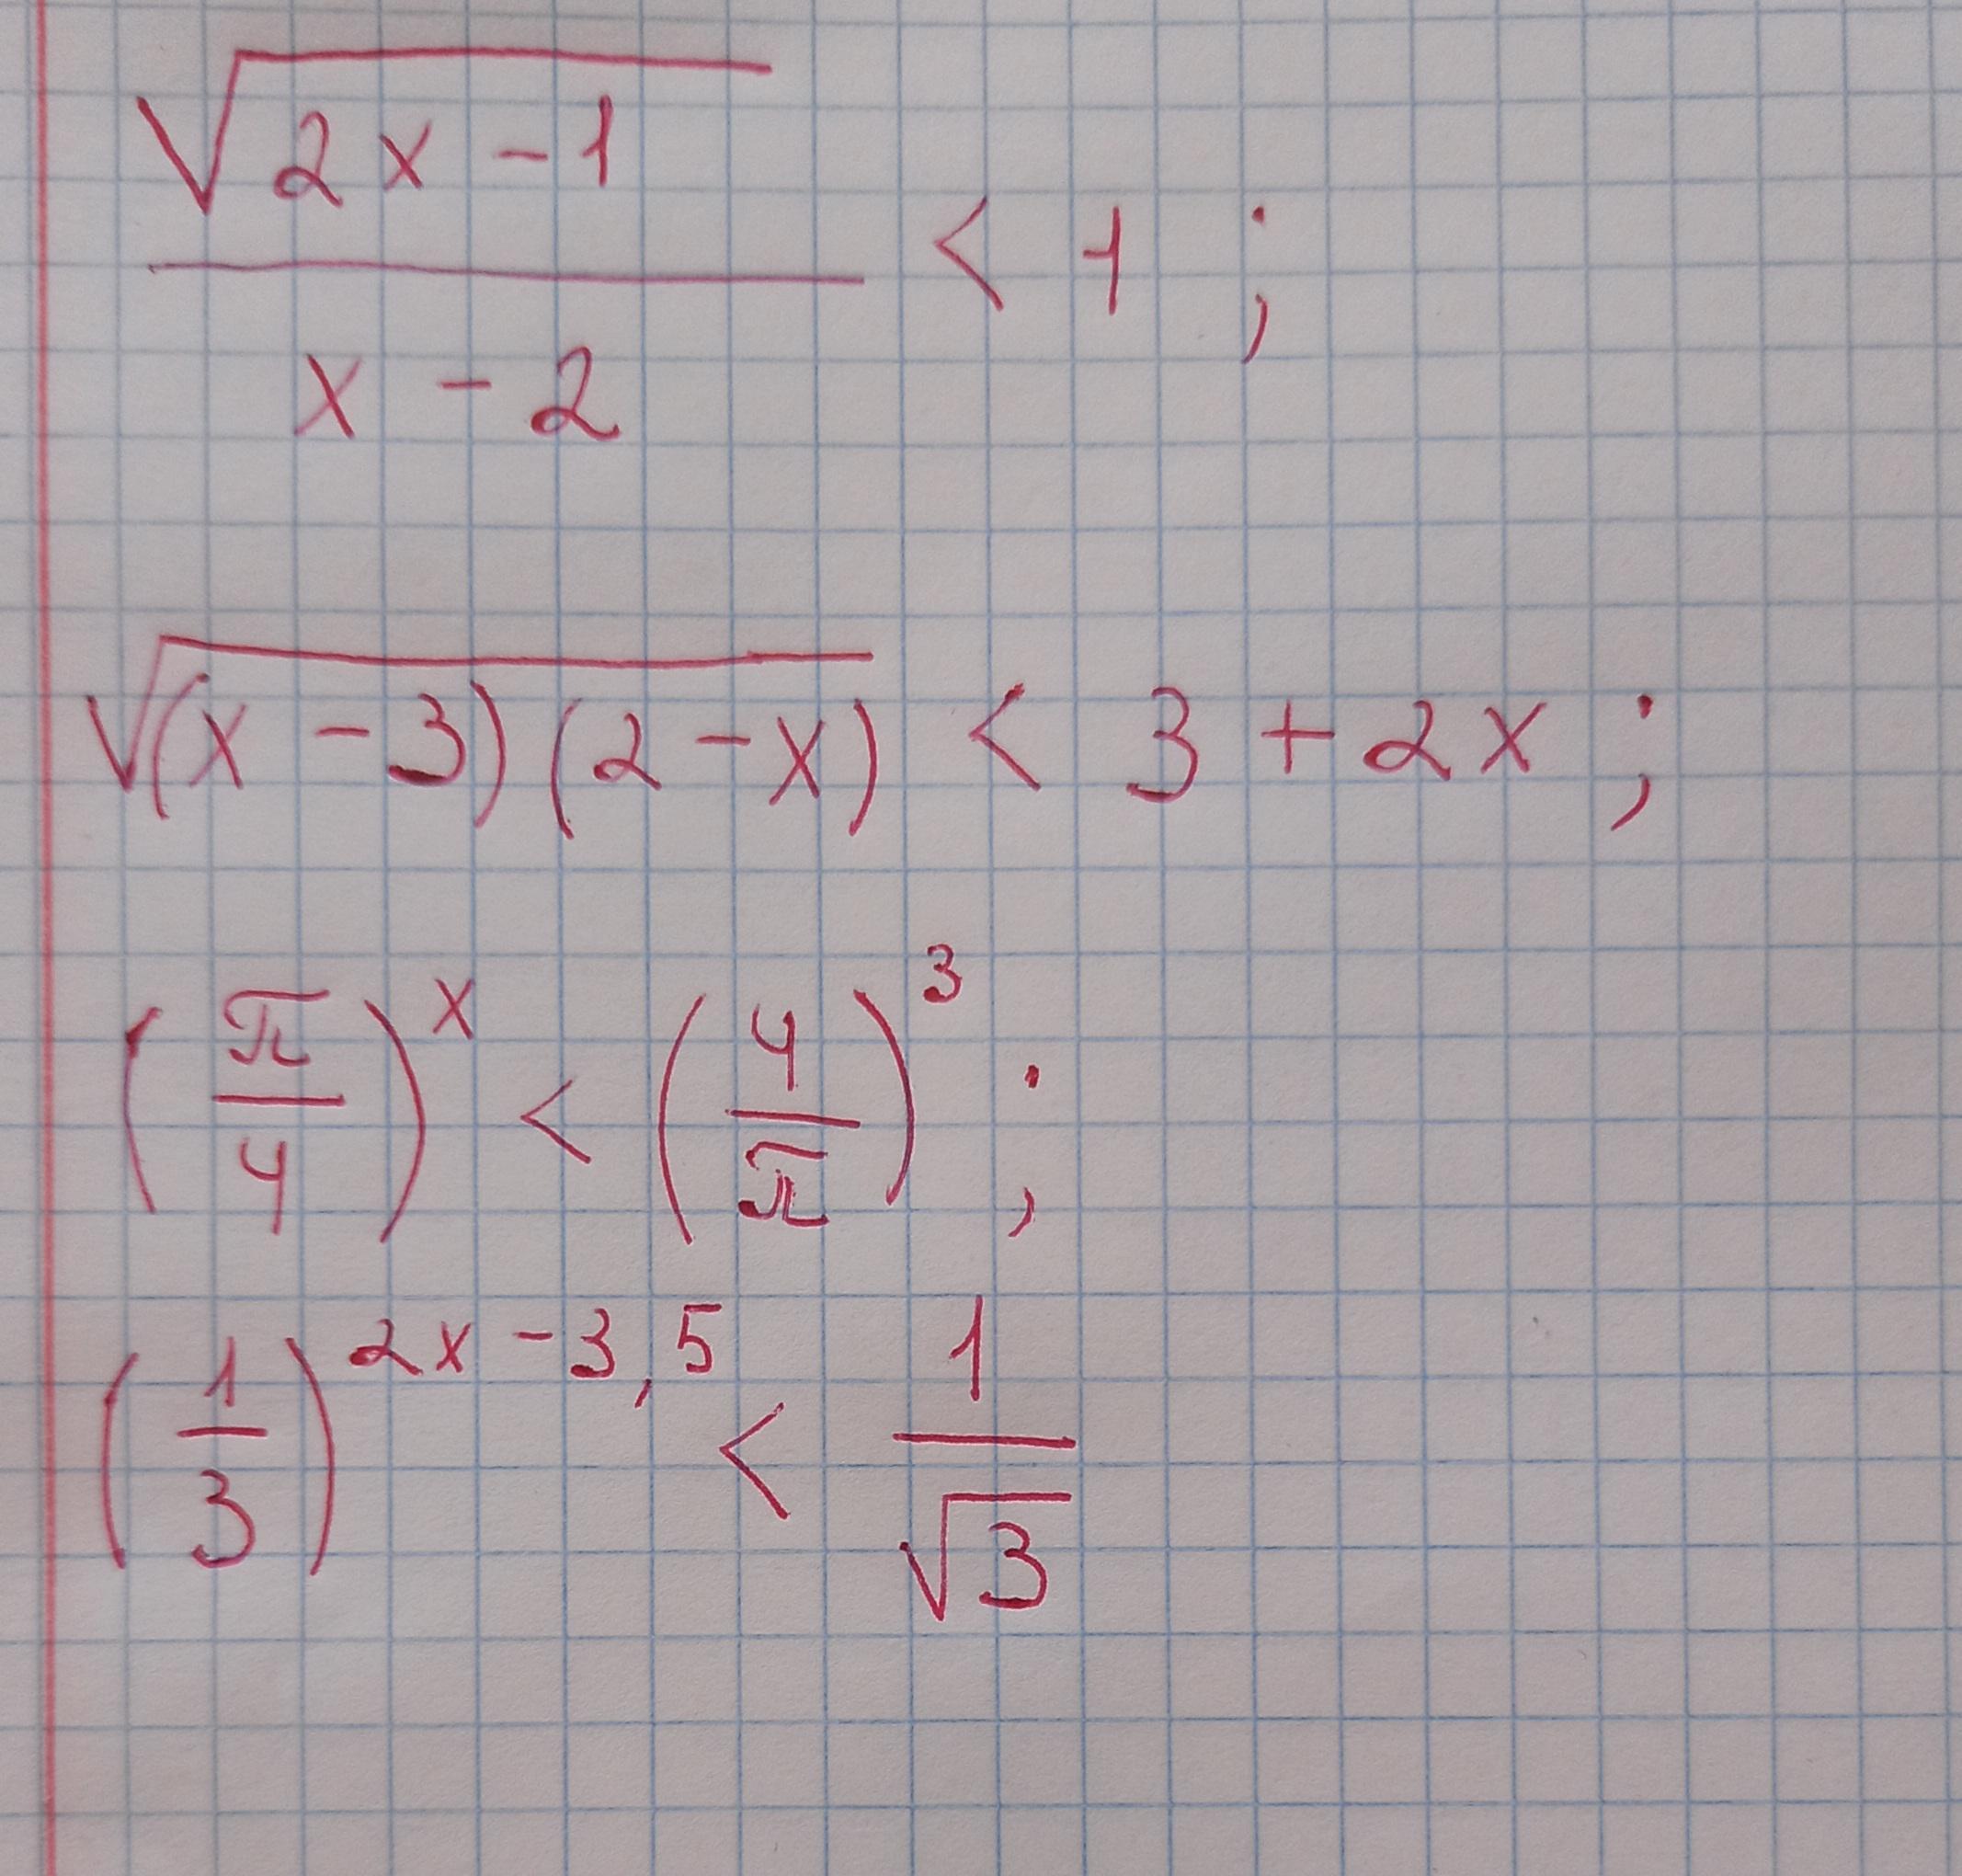 √(2x - 1) / (x - 2) < 1 ;
√((x - 3)(2 - x)) < 3 + 2x ;
(π/4)^x < (4/π)^3 ;
(1/3)^(2x - 3,5) < 1/√3